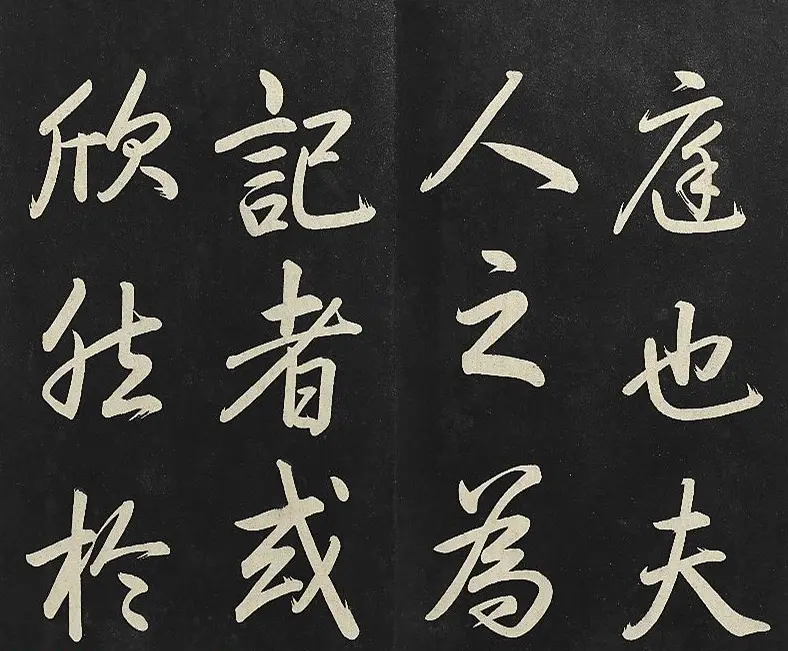 庭也夫
人之為
記者或
欣然於